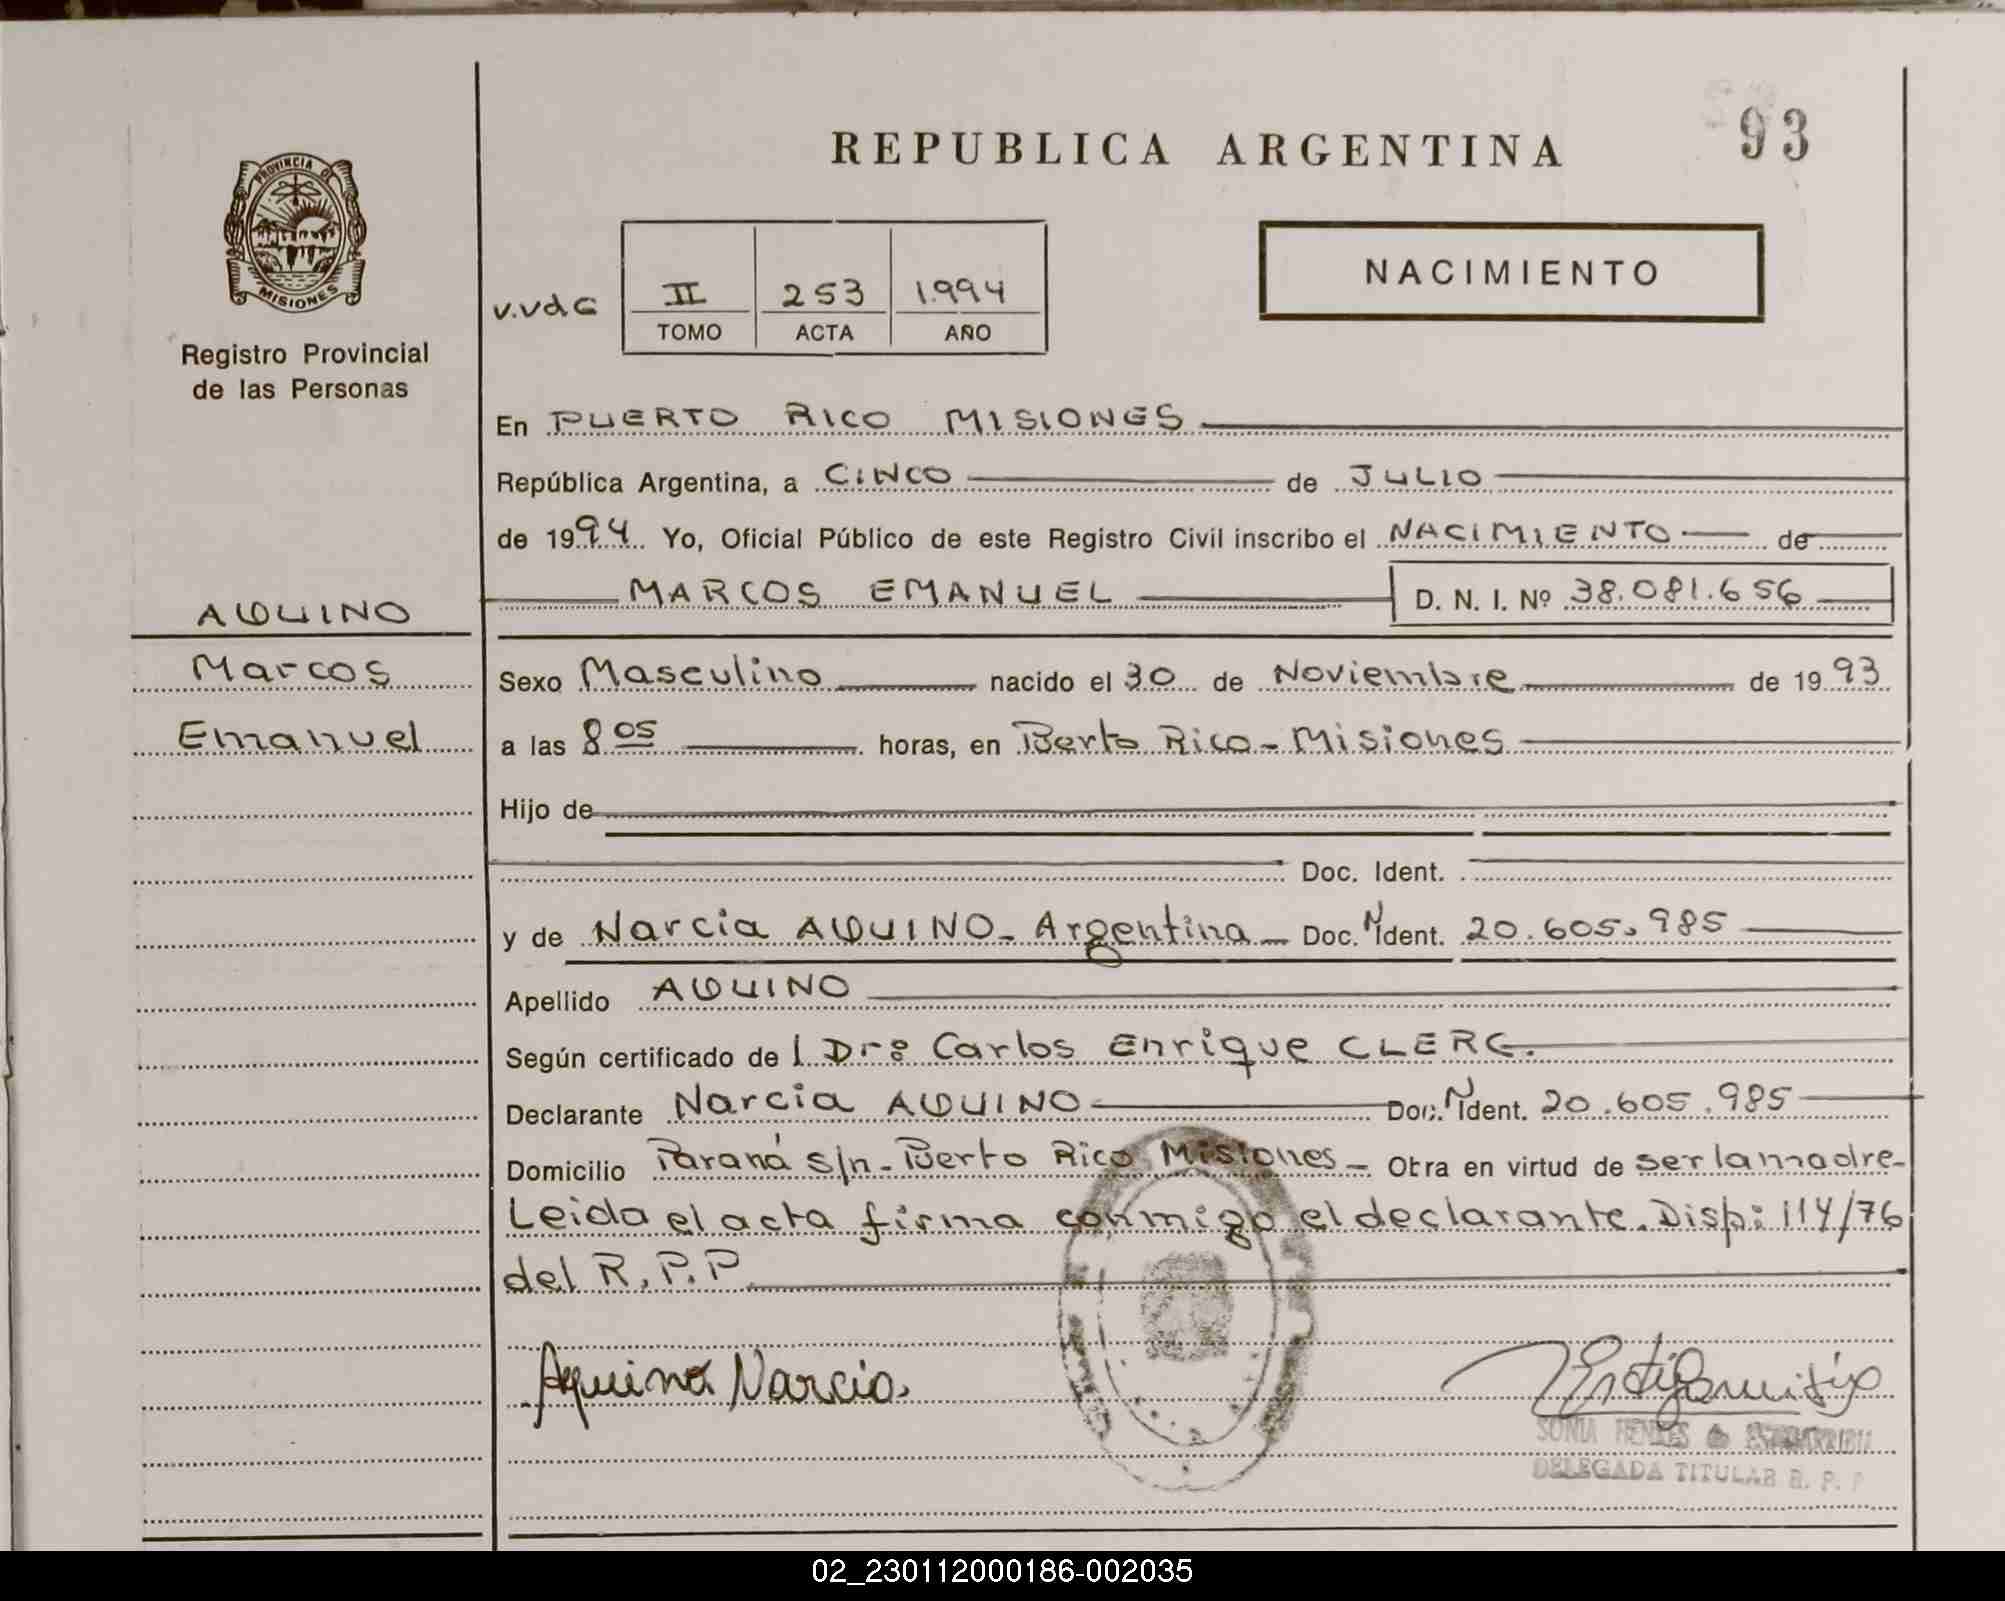 93
REPUBLICA ARGENTINA
PROVINCIA DE
MISIONES
Registro Provincial
de las Personas
NACIMIENTO
v.vdG II 253 1.994
TOMO ACTA AÑO
En PUERTO RICO MISIONES
República Argentina, a CINCO de JULIO
de 1994 Yo, Oficial Público de este Registro Civil inscribo el NACIMIENTO de
AQUINO MARCOS EMANUEL D. N. I. Nº 38.081.656
Marcos Sexo Masculino nacido el 30 de Noviembre de 1993
Emanuel a las 8 05 horas, en Puerto Rico - Misiones
Hijo de
Doc. Ident.
y de Narcia AQUINO - Argentina - Doc. N Ident. 20.605.985
Apellido AQUINO
Según certificado de l Dr: Carlos Enrique CLERC.
Declarante Narcia AQUINO Doc. N Ident. 20.605.985
Domicilio Paraná s/n - Puerto Rico Misiones - Obra en virtud de ser la madre -
Leida el acta firma conmigo el declarante. Disp: 114/76
del R.P.P.
Aquino Narcia.
SONIA
DELEGADA TITULAR R. P. P
02_230112000186-002035